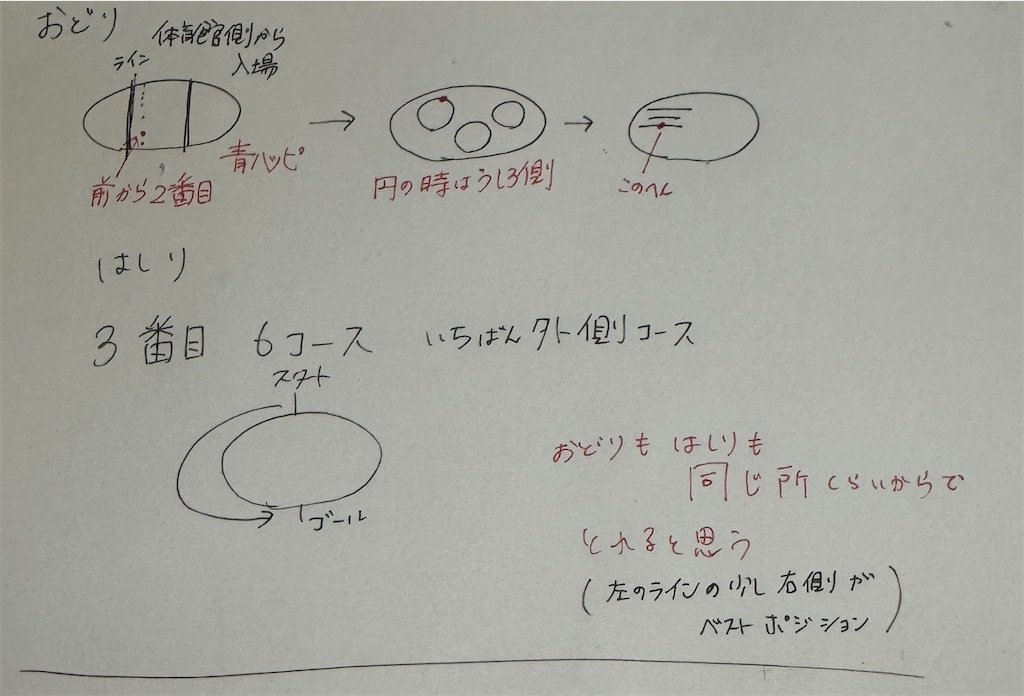 おどり
体育館側から
入場
ライン
青ハッピ
前から2番目
円の時はうしろ側
このへん
はしり
3番目 6コース いちばん外側コース
スタート
ゴール
おどりも はしりも
同じ所くらいからで
とれると思う
(左のラインの少し右側が
ベストポジション)